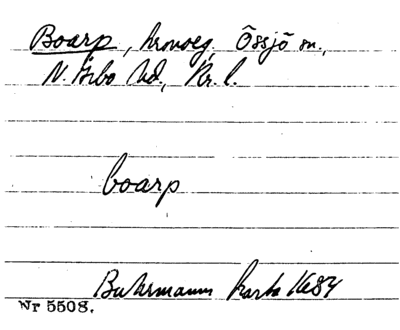 Boarp, kronoeg. Össjö sn.,
N. Åsbo hd., Kr. l.
boarp
Buhrmanns karta 1684
Nr 5508.